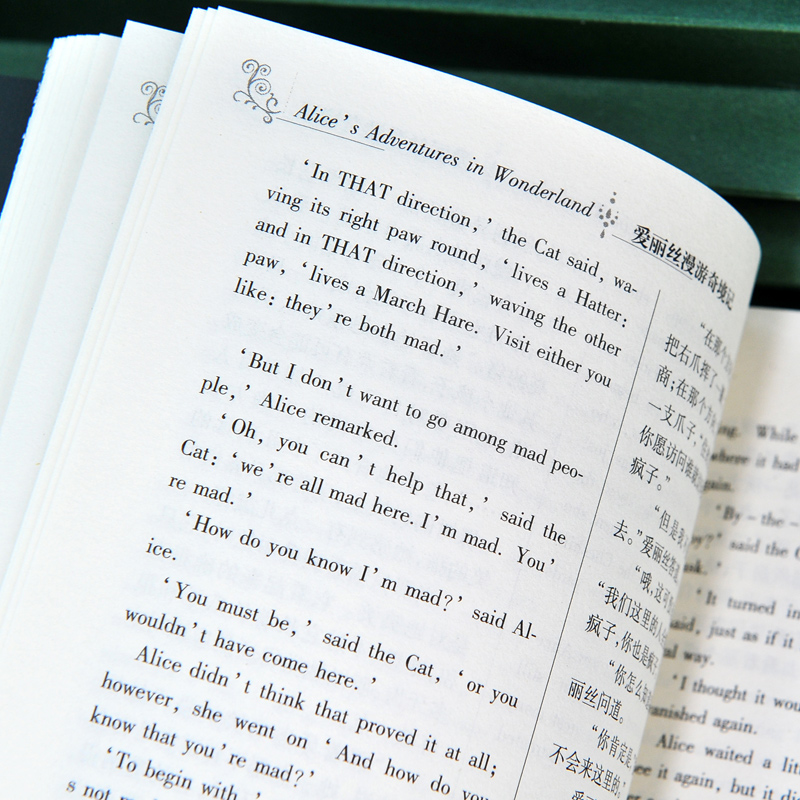 Alice's Adventures in Wonderland
爱丽丝漫游奇境记
'In THAT direction,' the Cat said, wa-
ving its right paw round, 'lives a Hatter:
and in THAT direction,' waving the other
paw, 'lives a March Hare. Visit either you
like: they're both mad.'
'But I don't want to go among mad peo-
ple,' Alice remarked.
'Oh, you can't help that,' said the
Cat: 'we're all mad here. I'm mad. You'
re mad.'
'How do you know I'm mad?' said Al-
ice.
'You must be,' said the Cat, 'or you
wouldn't have come here.'
Alice didn't think that proved it at all;
however, she went on 'And how do you
know that you're mad?'
'To begin with,'
s not
"在那个
把右爪挥了一
商;在那个方
一支爪子,"
你愿访问谁
疯子。"
"但是我
去。"爱丽丝
"哦,这可
"我们这里的人
疯子,你也是疯
"你怎么
丽丝问道。
"你肯定是
不会来这里的,"
While
where it had
again.
'By-the-
said the
'It turned in
said, just as if it
way.
'I thought it wou
vanished again.
Alice waited a lit
see it again, but it di